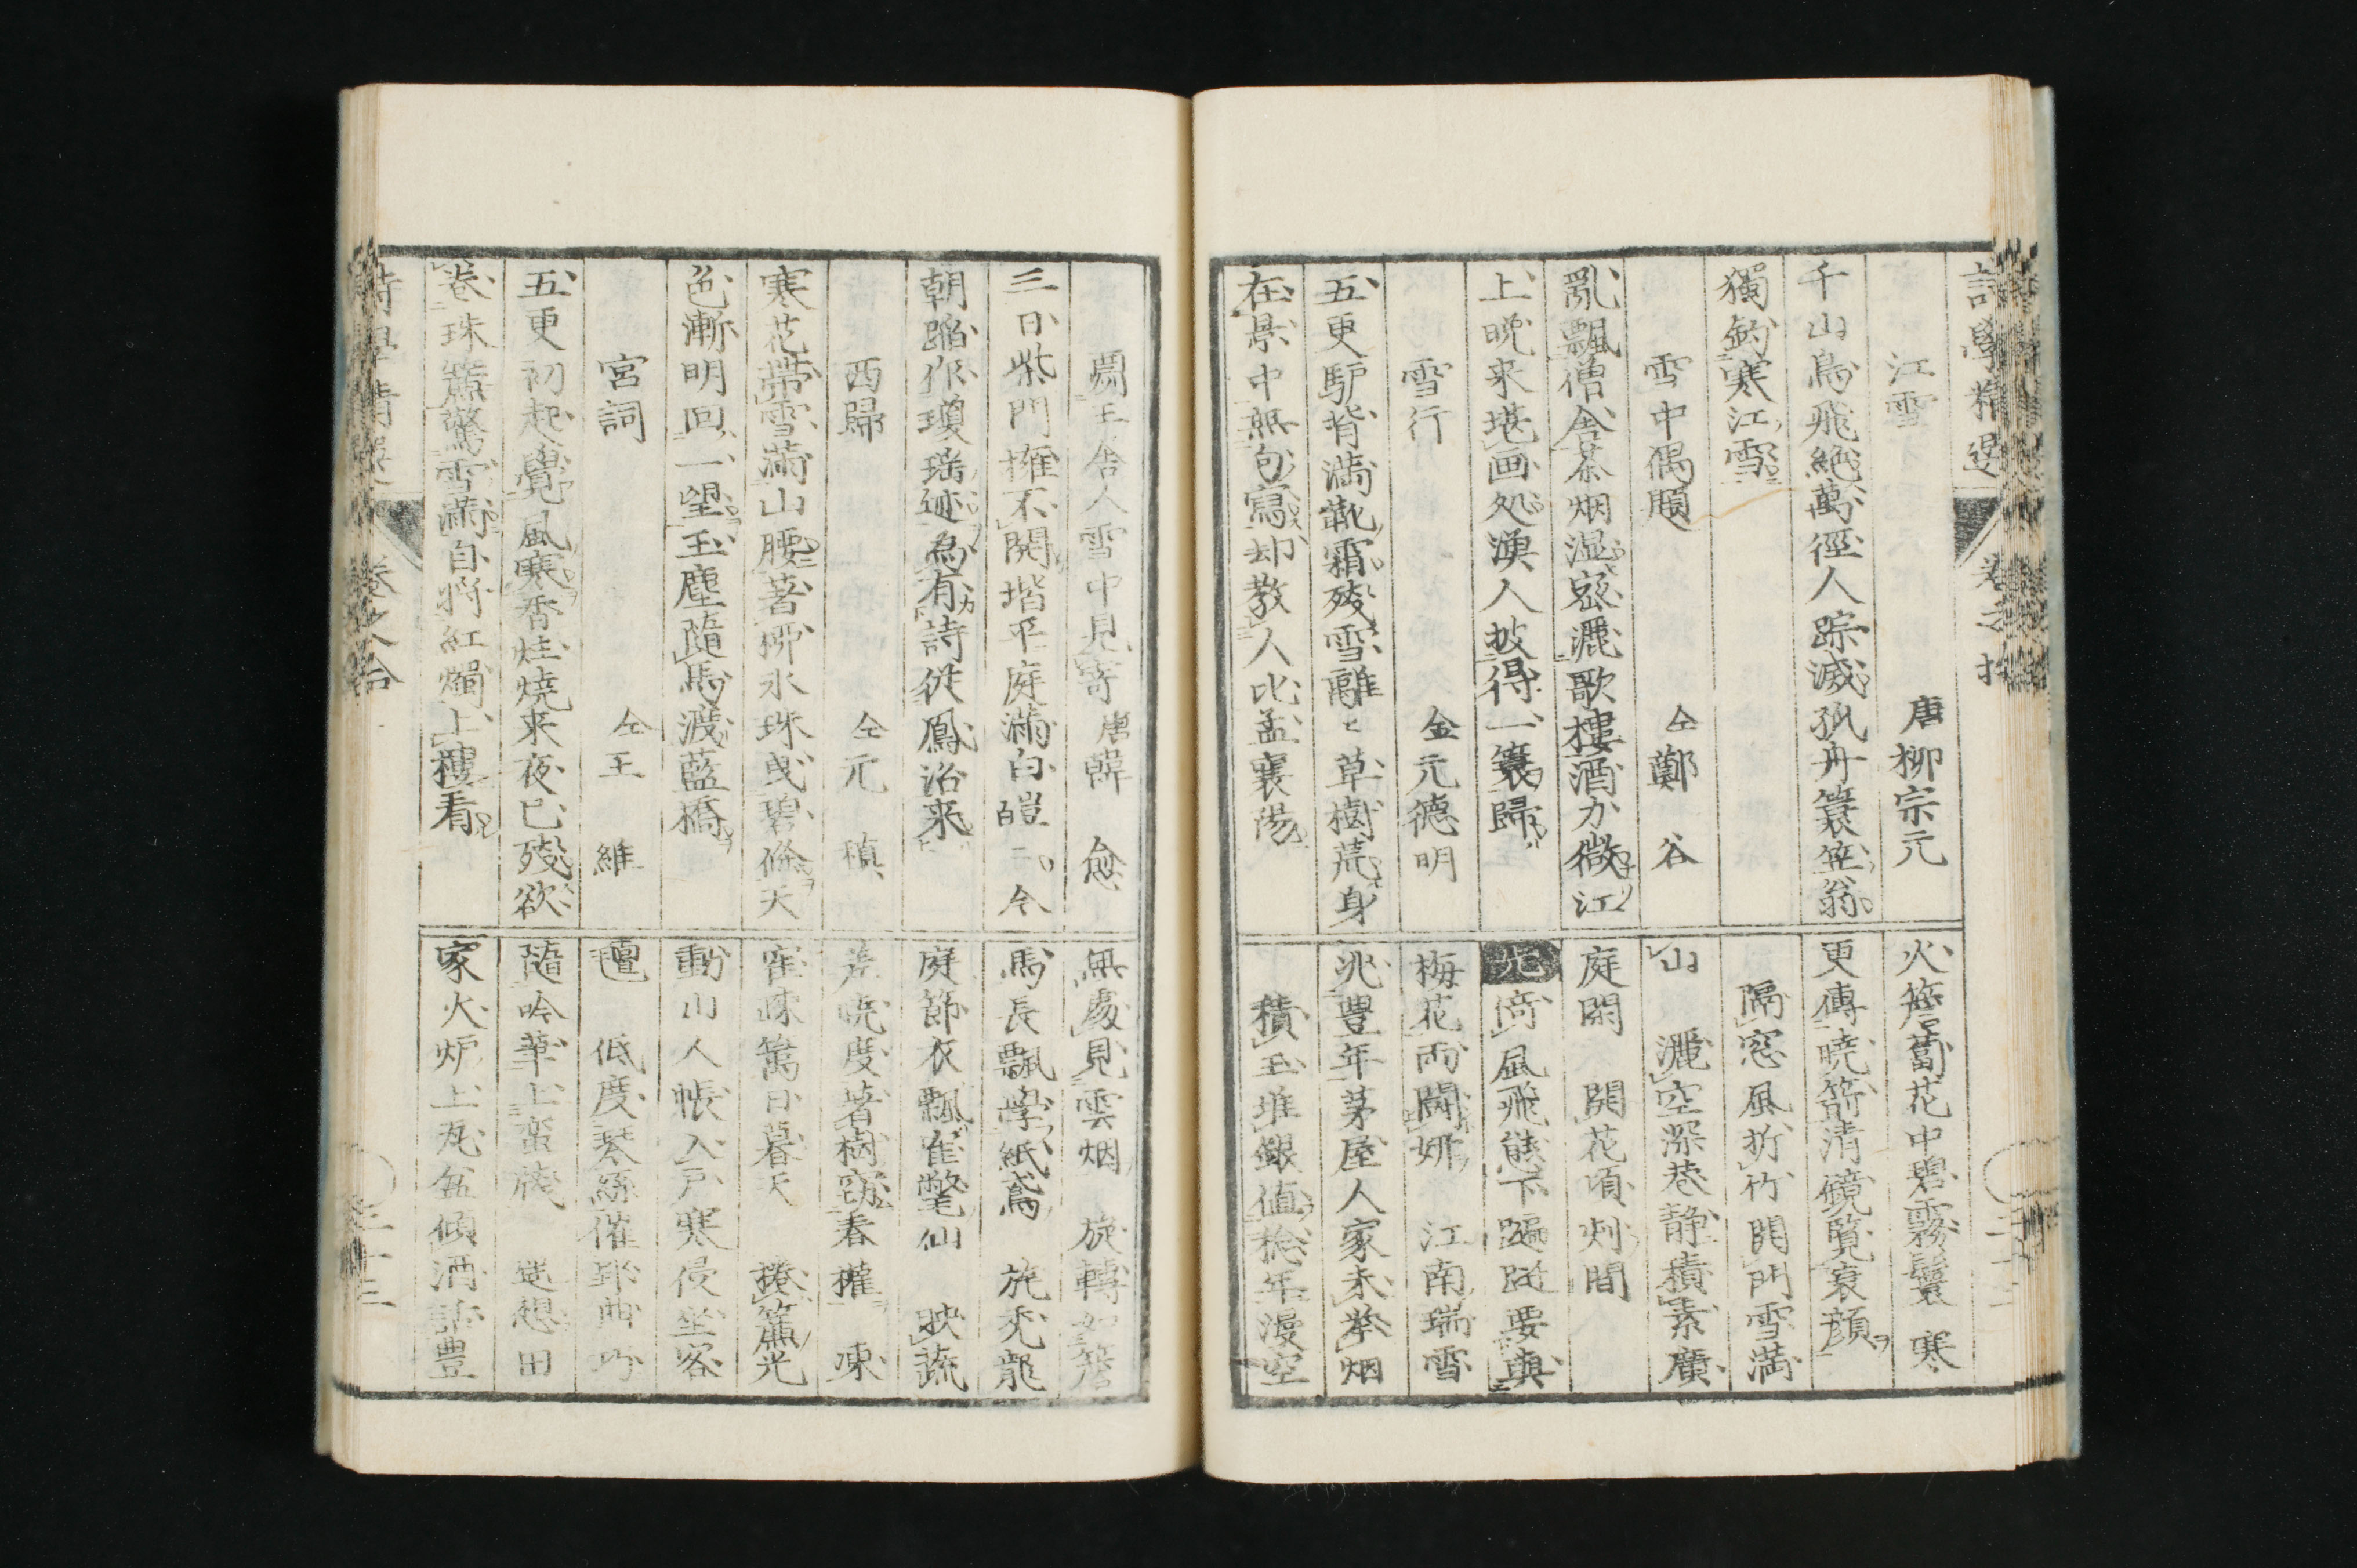 江雪　唐柳宗元
千山鳥飛絶萬徑人踪滅孤舟簑笠翁
獨釣寒江雪
雪中偶題　仝鄭谷
亂飄僧舎茶烟湿密灑歌樓酒力微江
上晩来堪画処漁人披得一簑歸
雪行　金元德明
五更馿背満靴霜残雪離〻草樹荒身
在景中無句寫却教人比孟襄陽
火簷蔔花中碧霧鬟　寒
更傳曉箭清鏡覽衰顔
隔窓風折竹開門雪満
山　灑空深巷静積素廣
庭閑　開花頃刻間
花　風飛能下蹁跹要真
梅花両闘娜　江南瑞雪
兆豊年茅屋人家未挙烟
積玉堆銀値稔年漫空
王舎人雪中見寄　唐韓愈
三日柴門擁不開堦平庭満白皚〻今
朝蹈作瓊瑶迹為有詩従鳳沼来
西歸　仝元稹
寒花帶雪満山腰著柳氷珠曳碧條天
色漸明回一望玉塵隨馬渡藍橋
宮詞　仝王維
五更初起覺風寒香炷燒来夜已殘欲
卷珠簾驚雪満自將紅燭上樓看
無處見雲烟　旋轉如簷
馬長飄學紙鳶　旋禿龍
庭節衣飄崔氅仙　映蔬
差晩度著樹窃春權　凍
疎篱日暮天　捲簾光
動山人帳入戸寒侵坐客
氊　低度琴絲催郢曲巧
隨吟華上蛮牋　遥想田
家火炉上瓦盆傾酒話豊
詩學精選　卷之八冶　二十三